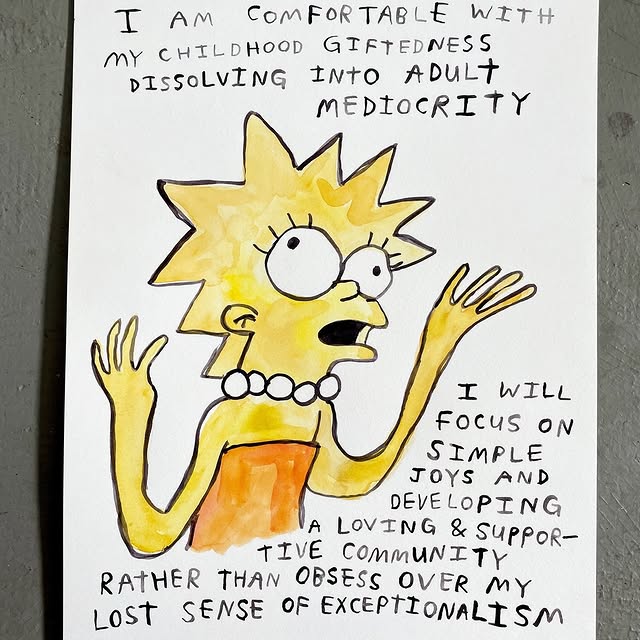 I AM COMFORTABLE WITH
MY CHILDHOOD GIFTEDNESS
DISSOLVING INTO ADULT
MEDIOCRITY
I WILL
FOCUS ON
SIMPLE
JOYS AND
DEVELOPING
A LOVING & SUPPOR-
TIVE COMMUNITY
RATHER THAN OBSESS OVER MY
LOST SENSE OF EXCEPTIONALISM